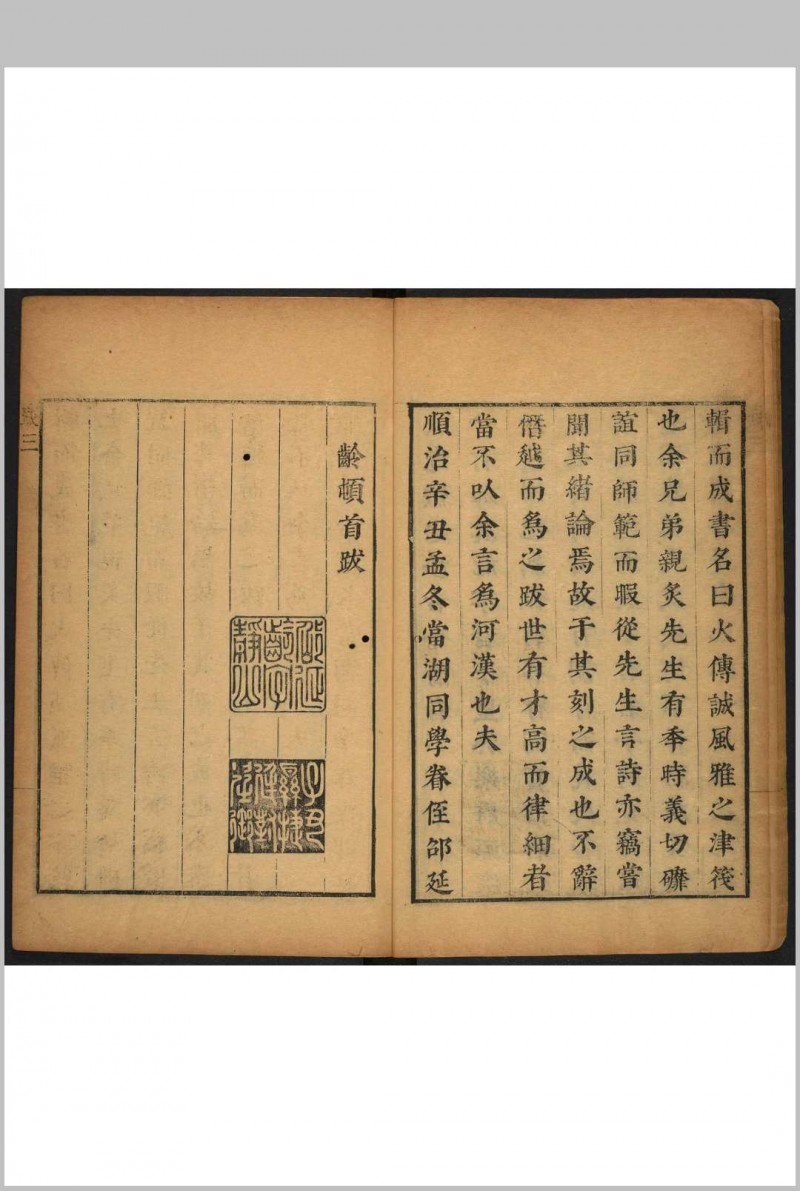 輯而成書名曰火傳誠風雅之津筏
也余兄弟親炙先生有秊時義切磨
誼同師範而暇從先生言詩亦竊嘗
聞其緒論焉故于其刻之成也不辭
僭越而爲之跋世有才高而律細者
當不㕥余言爲河漢也夫
順治辛丑孟冬當湖同學眷侄邵延
齡頓首跋
邵延
齡字
靜山
跋 三